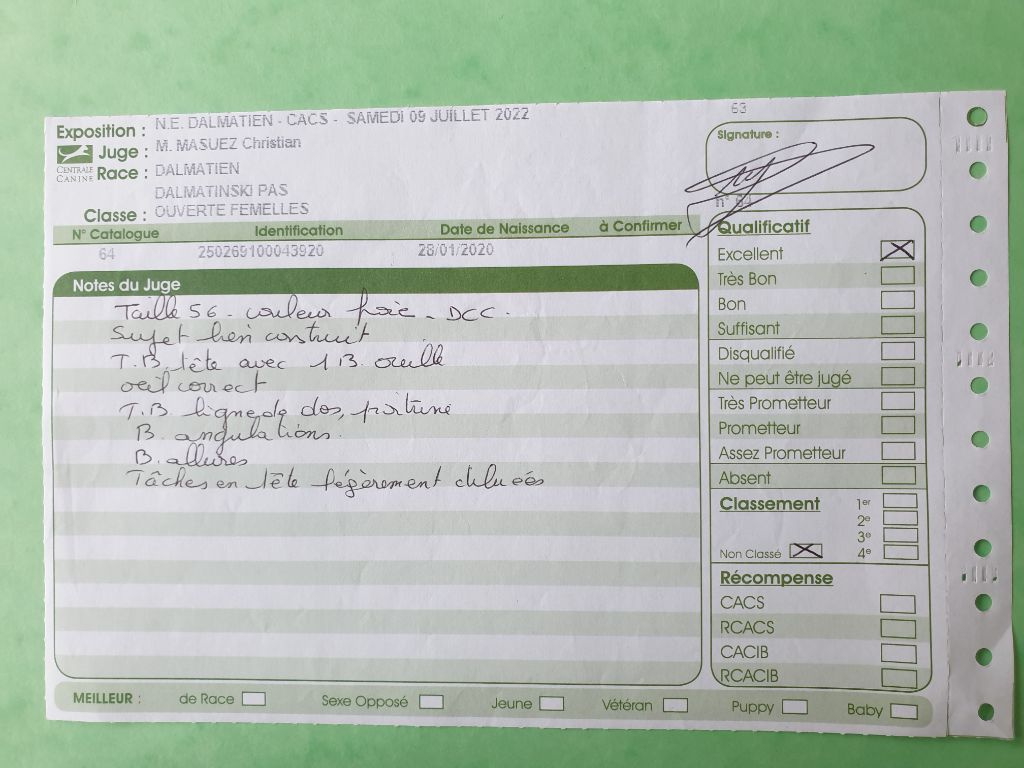 63
Exposition : N.E. DALMATIEN - CACS - SAMEDI 09 JUILLET 2022
Juge : M. MASUEZ Christian
CENTRALE CANINE
Race : DALMATIEN
DALMATINSKI PAS
Classe : OUVERTE FEMELLES
Signature :
n° 64
N° Catalogue Identification Date de Naissance à Confirmer
64 250269100043920 28/01/2020
Notes du Juge
Taille 56 - couleur foie - DCC.
Sujet bien construit
T.B. tête avec 1 B. oreille
oeil correct
T.B. ligne de dos, poitrine
B. angulations.
B. allures
Tâches en tête légèrement diluées
Qualificatif
Excellent
Très Bon
Bon
Suffisant
Disqualifié
Ne peut être jugé
Très Prometteur
Prometteur
Assez Prometteur
Absent
Classement 1er
2e
3e
Non Classé 4e
Récompense
CACS
RCACS
CACIB
RCACIB
MEILLEUR : de Race Sexe Opposé Jeune Vétéran Puppy Baby